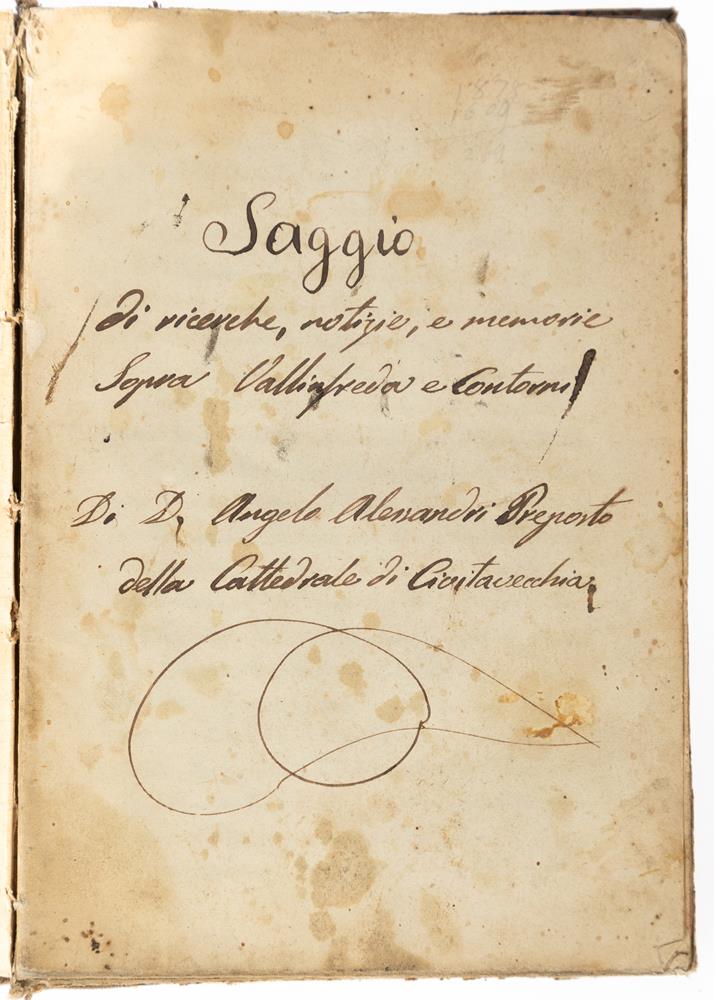 1878
1609
Saggio
di ricerche, notizie, e memorie
Sopra Vallinfreda e Contorni
Di D. Angelo Alessandri Preposto
della Cattedrale di Civitavecchia.